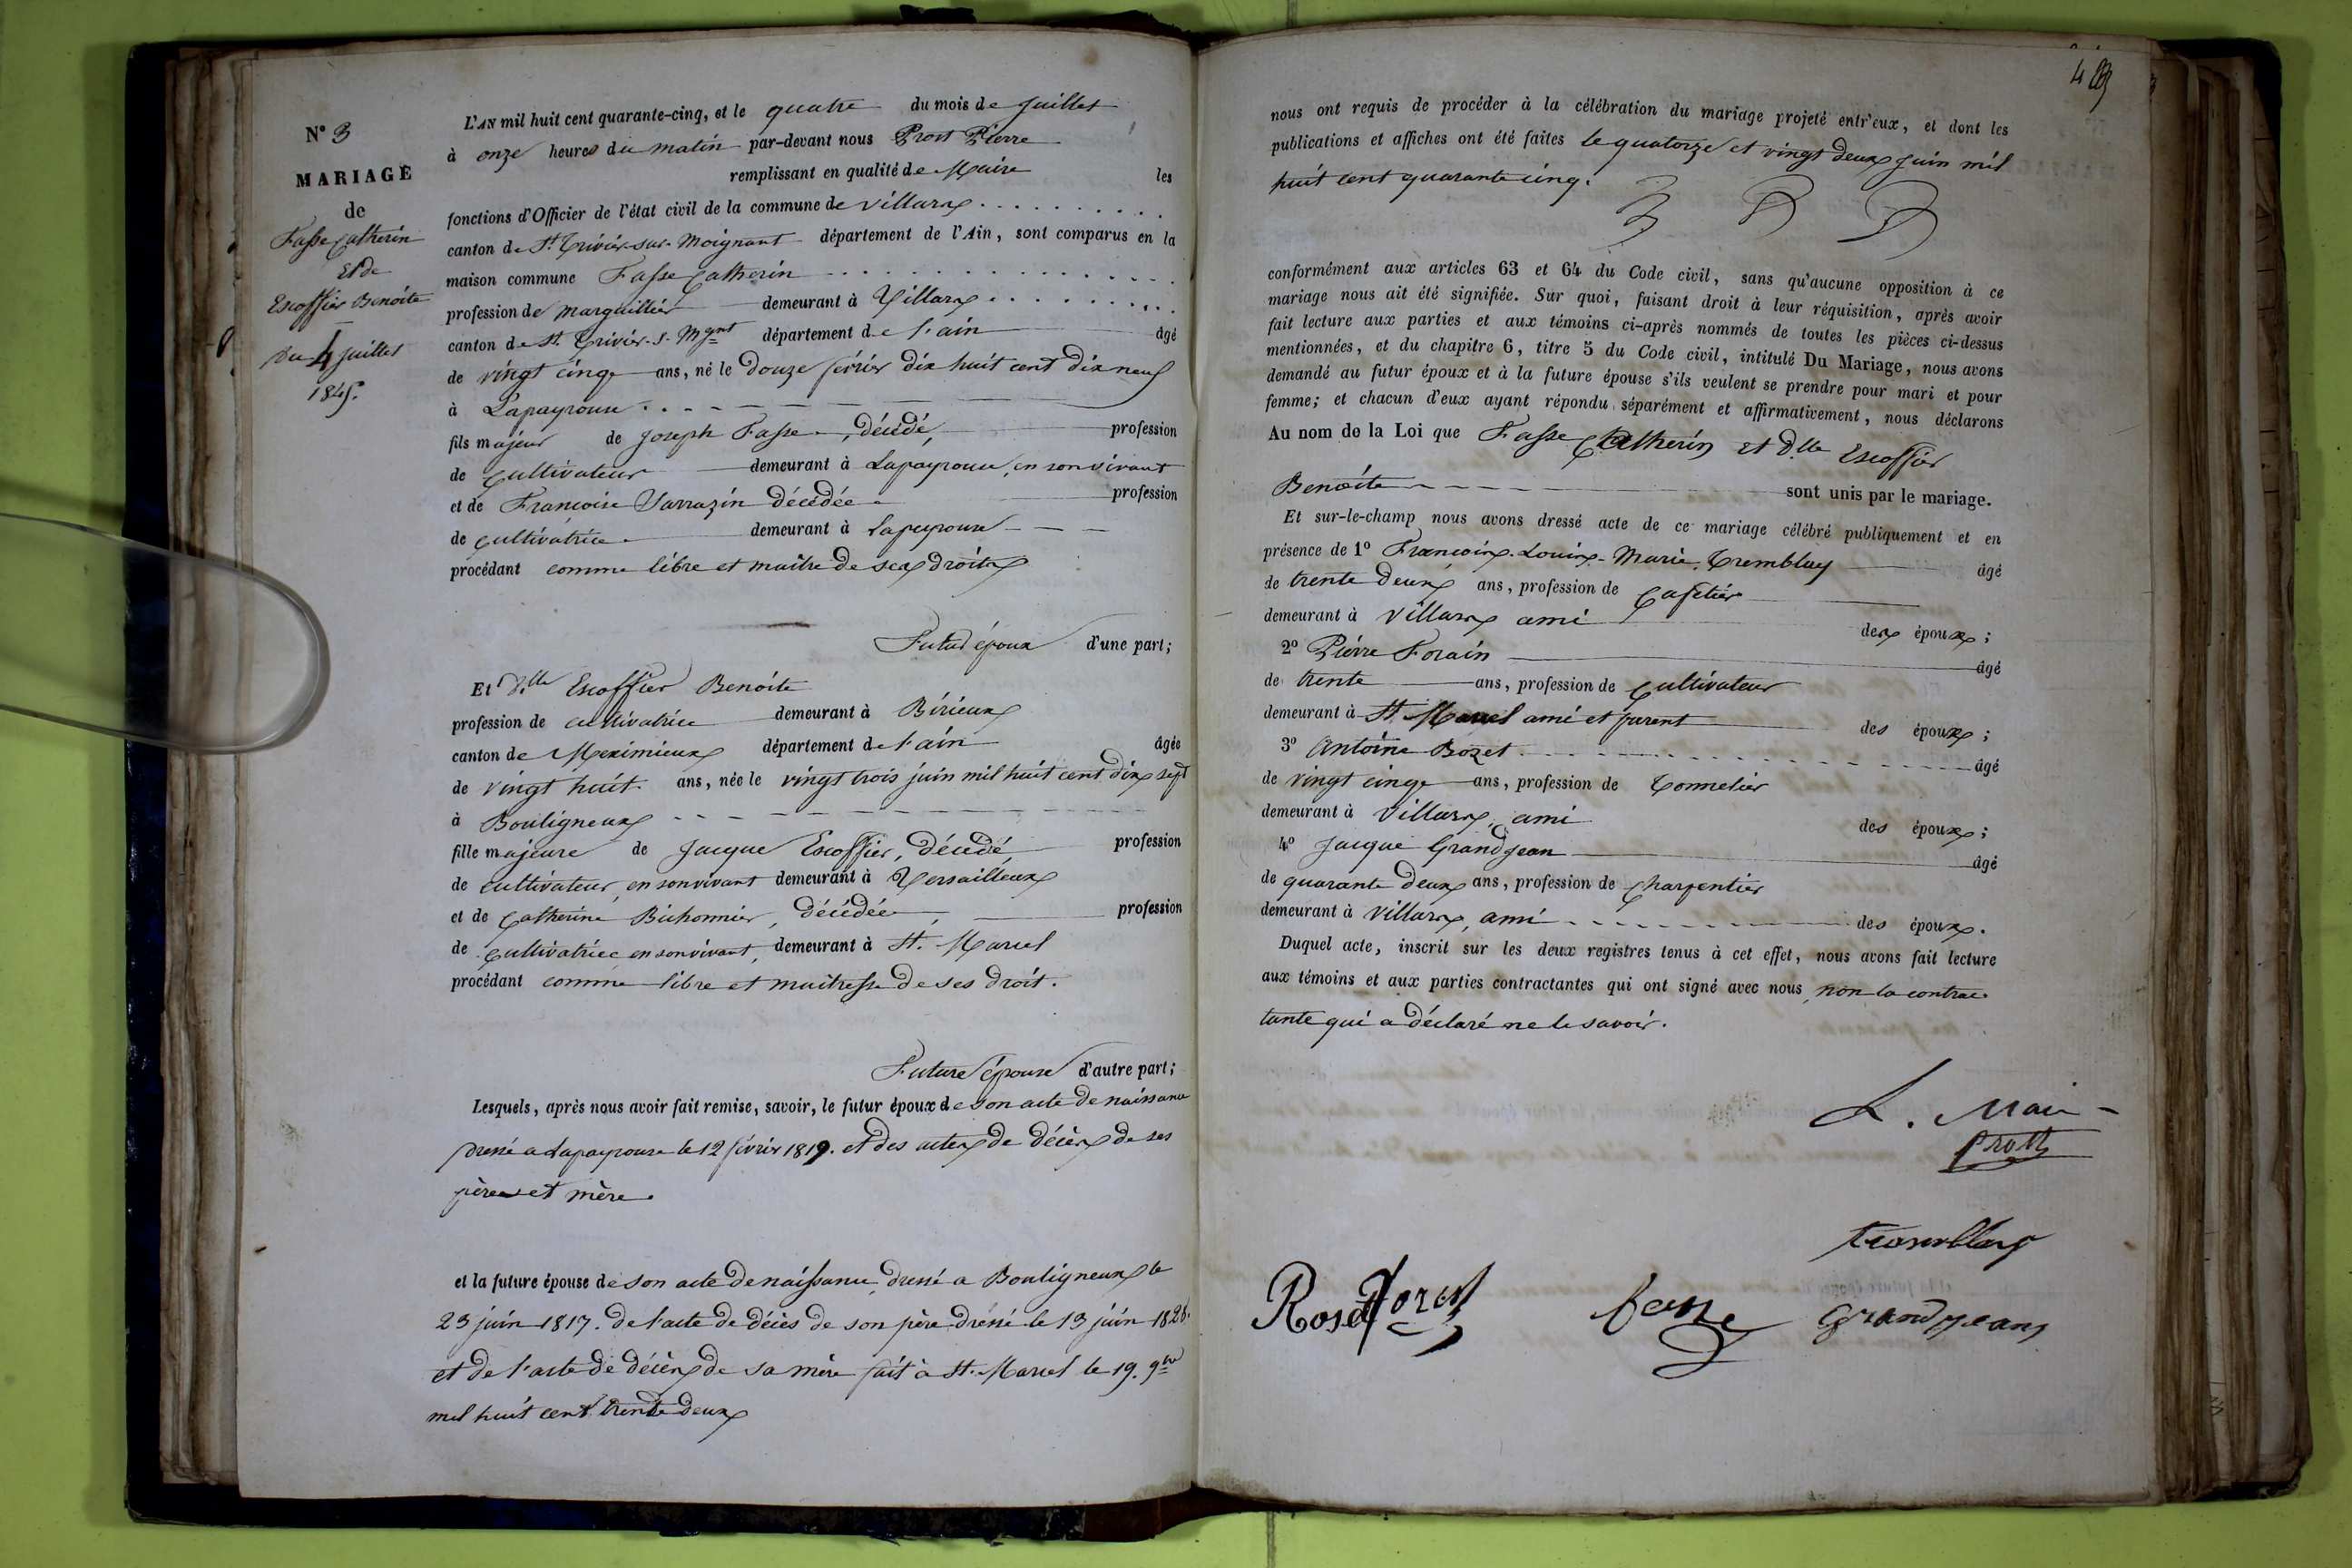 N° 3
MARIAGE
de
Fasse Catherin
Et de
Escoffier Benoite
Du 4 juillet
1845.
L'AN mil huit cent quarante-cinq, et le quatre du mois de Juillet
à onze heures du matin par-devant nous Prost Pierre
remplissant en qualité de Maire les
fonctions d'Officier de l'état civil de la commune de Villars
canton de St. Trivier-sur-Moignant département de l'Ain, sont comparus en la
maison commune Fasse Catherin
profession de Marguillier demeurant à Villars
canton de St. Trivier-s-Mgnt département de l'ain âgé
de vingt cinq ans, né le Douze février dix huit cent dix neuf
à Lapayrouse
fils majeur de Joseph Fasse, décédé, profession
de Cultivateur demeurant à Lapayrouse, en son vivant
et de Francoise Sarrazin décédée profession
de cultivatrice demeurant à Lapeyrouse
procédant comme libre et maitre de ses droits
Futur époux d'une part;
Et Dlle Escoffier Benoite
profession de cultivatrice demeurant à Birieux
canton de Meximieux département de l'ain âgée
de vingt huit ans, née le vingt trois juin mil huit cent dix sept
à Bouligneux
fille majeure de Jacque Escoffier, décédé, profession
de cultivateur, en son vivant demeurant à Versailleux
et de Catherine Bichonnier, décédée, profession
de Cultivatrice en son vivant, demeurant à St. Marcel
procédant comme libre et maitresse de ses droit.
Future épouse d'autre part;
Lesquels, après nous avoir fait remise, savoir, le futur époux de son acte de naissance
dressé a Lapayrouse le 12 février 1819. et des actes de décès de ses
pères et mère.
et la future épouse de son acte de naissance, dressé a Bouligneux le
23 juin 1817. de l'acte de décès de son père dressé le 13 juin 1828.
et de l'acte de décès de sa mère fait à St. Marcel le 19. 9bre
mil huit cent trente deux
nous ont requis de procéder à la célébration du mariage projeté entr'eux, et dont les
publications et affiches ont été faites le quatorze et vingt deux juin mil
huit cent quarante cinq.
conformément aux articles 63 et 64 du Code civil, sans qu'aucune opposition à ce
mariage nous ait été signifiée. Sur quoi, faisant droit à leur réquisition, après avoir
fait lecture aux parties et aux témoins ci-après nommés de toutes les pièces ci-dessus
mentionnées, et du chapitre 6, titre 5 du Code civil, intitulé Du Mariage, nous avons
demandé au futur époux et à la future épouse s'ils veulent se prendre pour mari et pour
femme; et chacun d'eux ayant répondu séparément et affirmativement, nous déclarons
Au nom de la Loi que Fasse Catherin et Dlle Escoffier
Benoite sont unis par le mariage.
Et sur-le-champ nous avons dressé acte de ce mariage célébré publiquement et en
présence de 1° Francois-Louis-Marie Tremblay âgé
de trente deux ans, profession de Cafetier
demeurant à Villars ami des époux;
2° Pierre Forain âgé
de trente ans, profession de Cultivateur
demeurant à St. Marcel ami et parent des époux;
3° Antoine Rozet âgé
de vingt cinq ans, profession de Tonnelier
demeurant à Villars, ami des époux;
4° Jacque Grandjean âgé
de quarante deux ans, profession de Charpentier
demeurant à Villars, ami des époux.
Duquel acte, inscrit sur les deux registres tenus à cet effet, nous avons fait lecture
aux témoins et aux parties contractantes qui ont signé avec nous, non la contrac
tante qui a déclaré ne le savoir.
L. Mair
Prost
Tremblay
Roset
fasse
grandjean